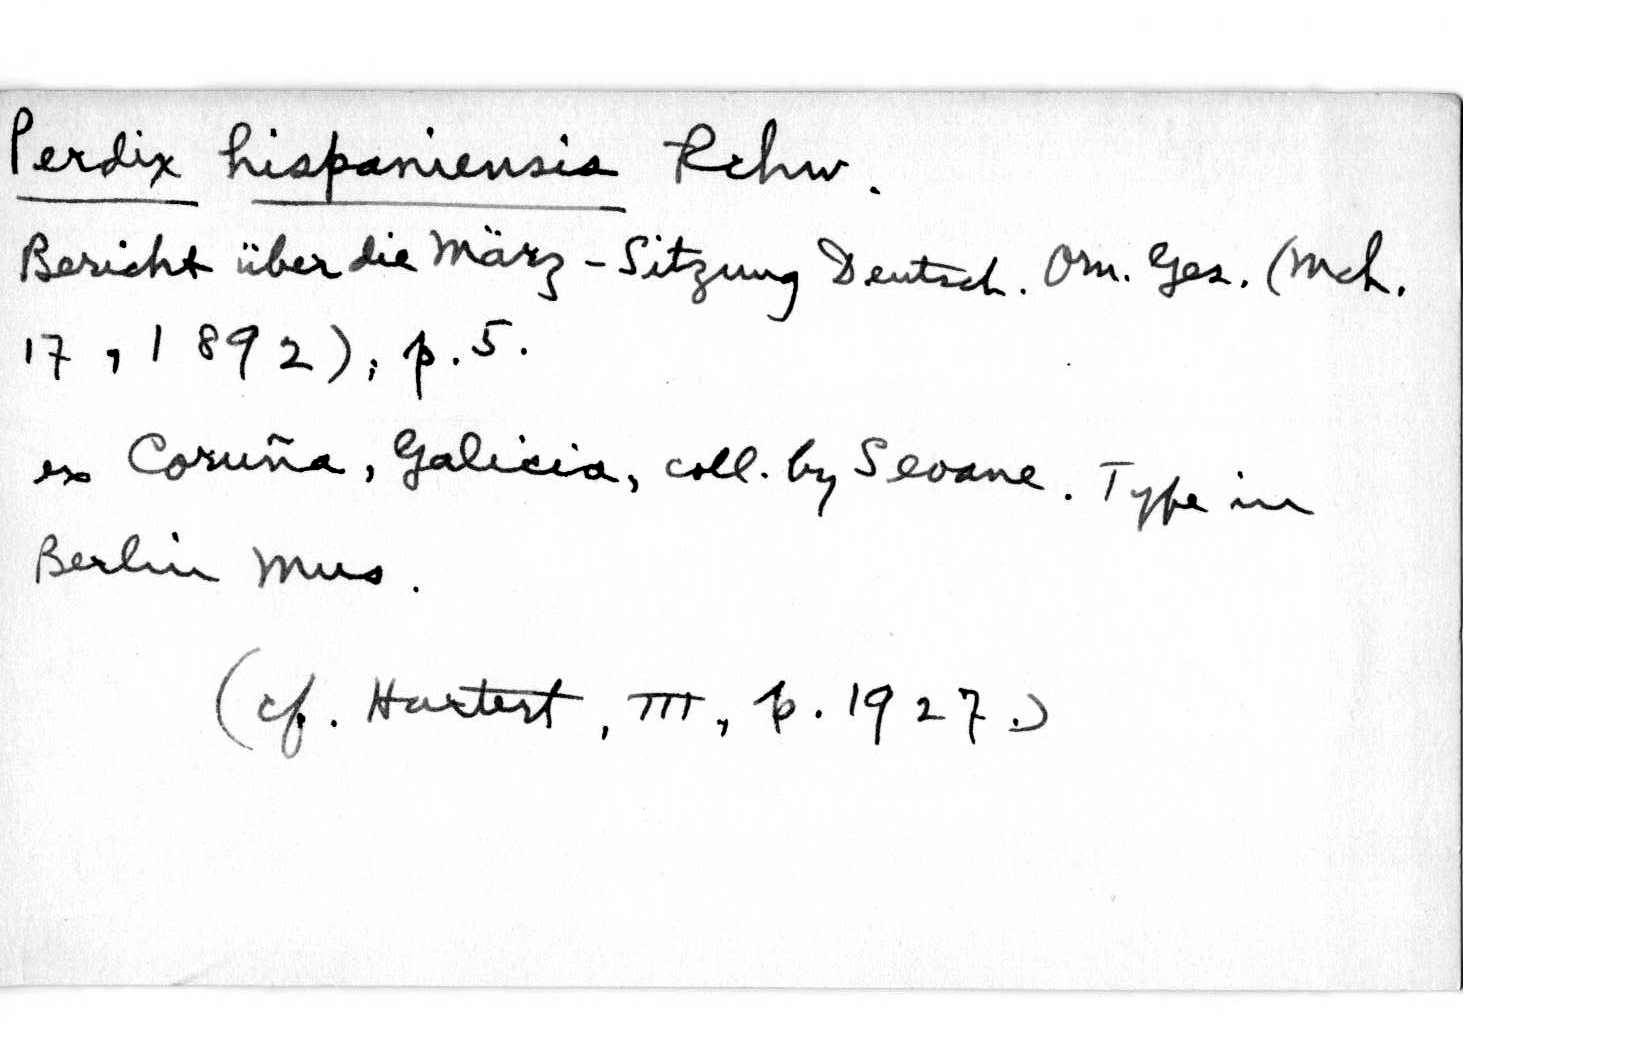 Perdix hispaniensis Rchw.
Bericht über die März-Sitzung Deutsch. Orn. Ges. (Mch.
17, 1892), p. 5.
ex Coruña, Galicia, coll. by Seoane. Type in
Berlin Mus.
(cf. Hartert, III, p. 1927.)